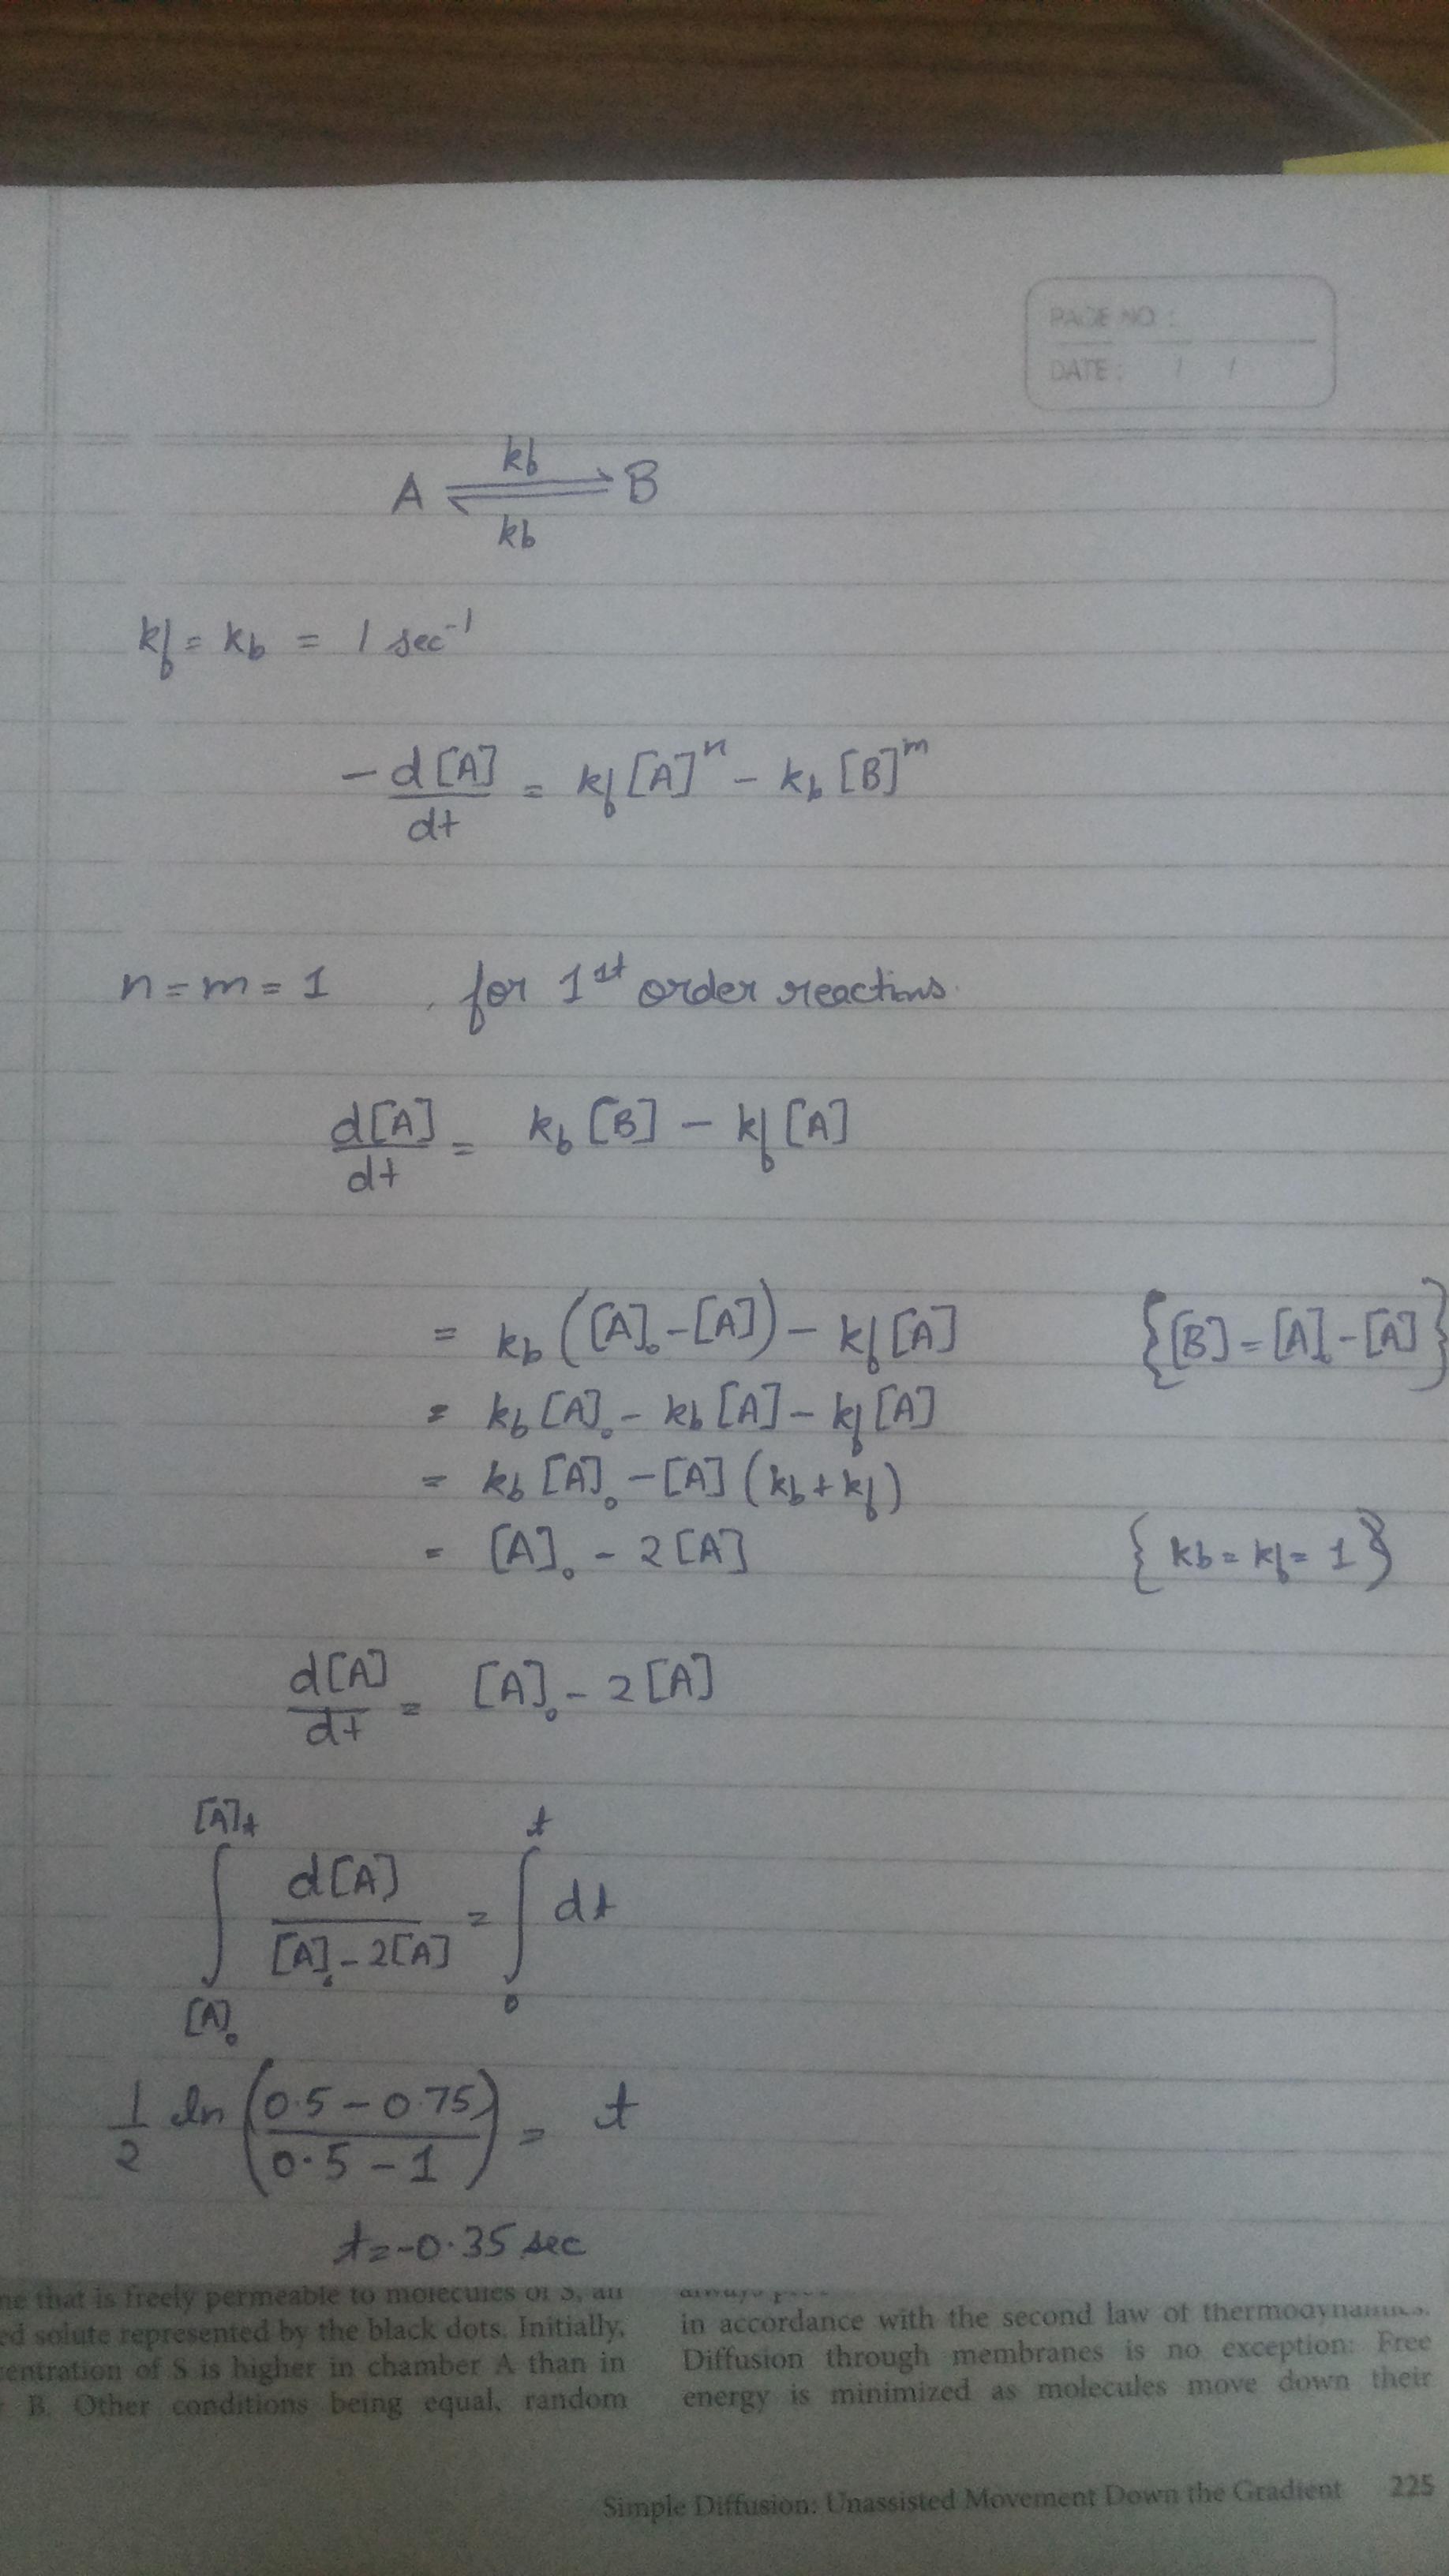 PAGE NO :
DATE : / /
kb
A ⇌ B
kb
kf = kb = 1 sec⁻¹
-d[A]/dt = kf[A]ⁿ - kb[B]ᵐ
n = m = 1 , for 1st order reactions.
d[A]/dt = kb[B] - kf[A]
= kb([A]₀ - [A]) - kf[A] {[B] = [A]₀ - [A]}
= kb[A]₀ - kb[A] - kf[A]
= kb[A]₀ - [A](kb + kf)
= [A]₀ - 2[A] {kb = kf = 1}
d[A]/dt = [A]₀ - 2[A]
[A]t t
∫ d[A]/([A]₀ - 2[A]) = ∫ dt
[A]₀ 0
1/2 ln((0.5 - 0.75)/(0.5 - 1)) = t
t = -0.35 sec
ne that is freely permeable to molecules of S, an
ed solute represented by the black dots. Initially,
entration of S is higher in chamber A than in
B. Other conditions being equal, random
in accordance with the second law of thermodynamics.
Diffusion through membranes is no exception: Free
energy is minimized as molecules move down their
Simple Diffusion: Unassisted Movement Down the Gradient 225